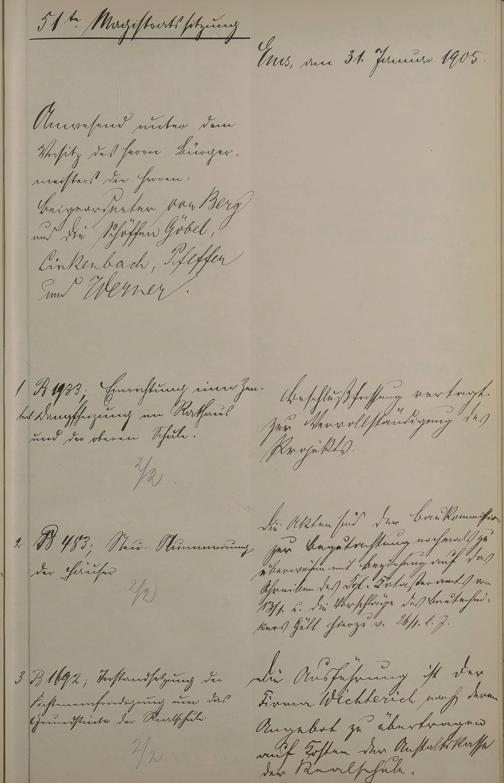 51te Magistratssitzung
Ems, den 31. Januar 1905.
Anwesend unter dem
Vorsitz des Herrn Bürger-
meisters die Herren:
Beigeordneter von Berg
und die Schöffen Göbel,
Linkenbach, Pfeffer
und Werner.
1 B 1933; Einrichtung einer Zen-
tral Dampfheizung im Rathaus
und der oberen Schule.
2/2
Beschlußfassung vertagt
zur Vervollständigung des
Projekts.
2 B 483; Neu-Nummerung
der Häuser
2/2
Die Akten sind der Baukommission
zur Begutachtung nochmals zu
überweisen mit Beziehung auf das
Schreiben des Kgl. Katasteramts vom
u. die Vorschläge des Bautechni-
kers hierzu v. 26/1. l. J.
3 B 1692; Instandsetzung der
um das
Grundstück der Realschule.
2/2
Die Ausführung ist der
Firma Wichterich nach deren
Angebot zu übertragen
auf Kosten der Anstaltskasse
der Realschule.